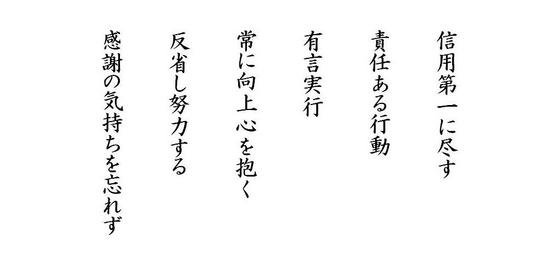 信用第一に尽す
責任ある行動
有言実行
常に向上心を抱く
反省し努力する
感謝の気持ちを忘れず